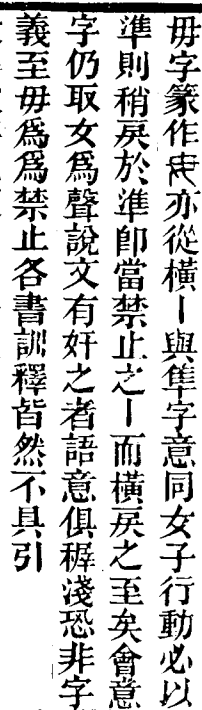 毋字篆作𣫬亦從橫丨與隼字意同女子行動必以
準則稍戾於準卽當禁止之丨而橫戾之至矣會意
字仍取女爲聲說文有奸之者語意俱稺淺恐非字
義至毋爲爲禁止各書訓釋皆然不具引